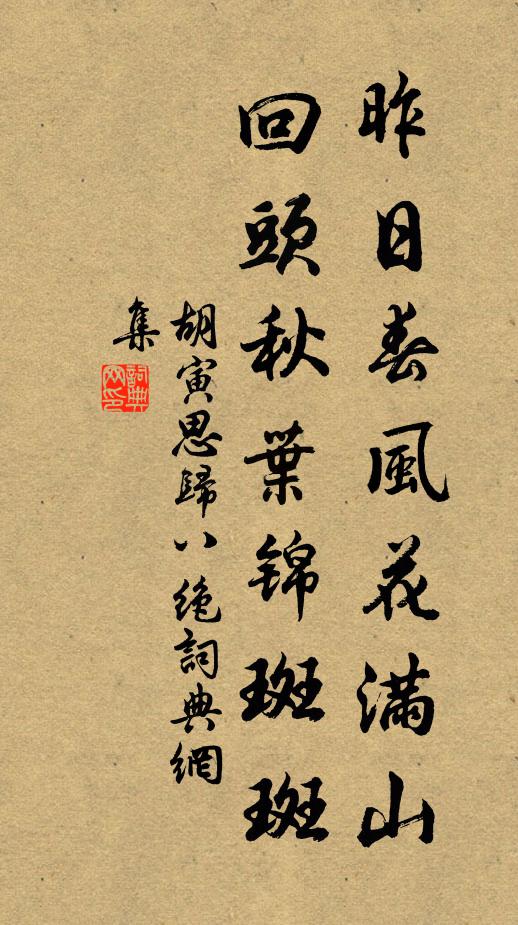 昨日春風花滿山
回頭秋葉錦斑斑
胡寅思歸八絶詞典網
集
詞典
网印